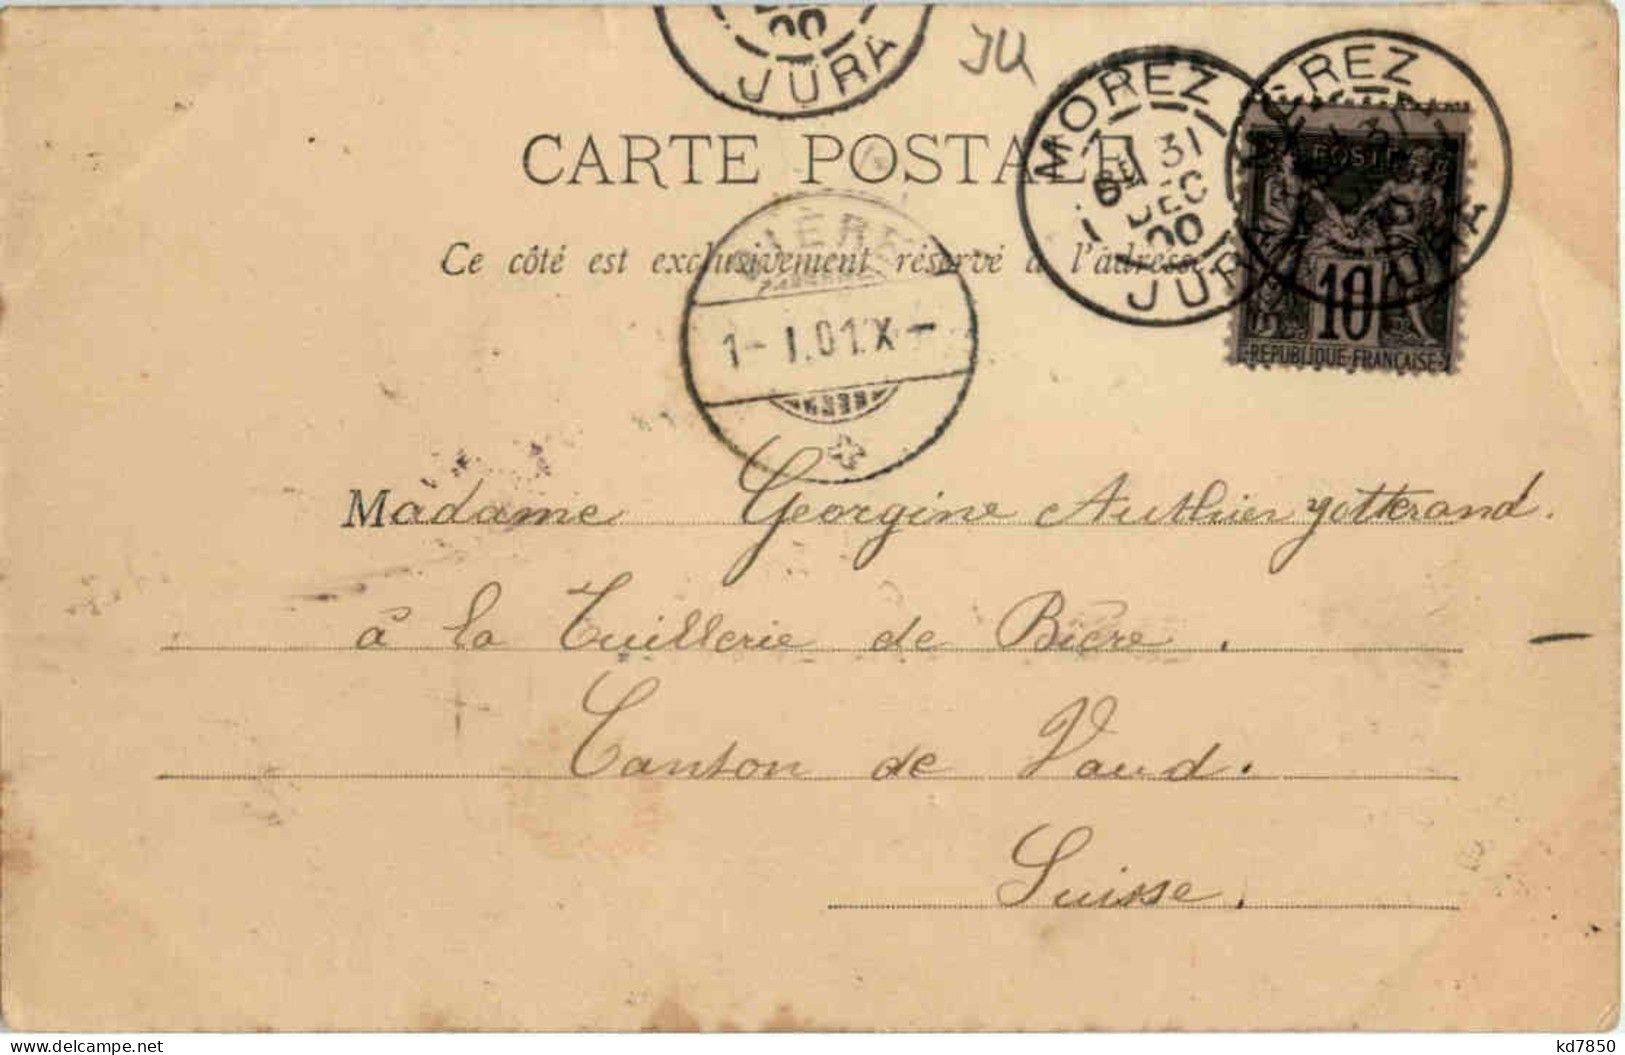 00
JURA
JU
MOREZ
31
DEC
00
JURA
MOREZ
31
JURA
POSTE
10
REPUBLIQUE FRANÇAISE
CARTE POSTALE
Ce côté est exclusivement réservé à l'adresse
BIÈRE
1-I.01.X-
Madame Georgine Authier yotterand.
à la Tuillerie de Bière.
Canton de Vaud.
Suisse.
kd7850